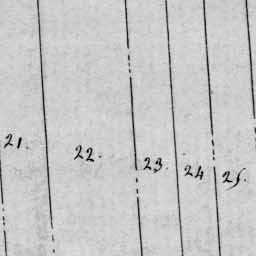 21. 22. 23. 24 25.